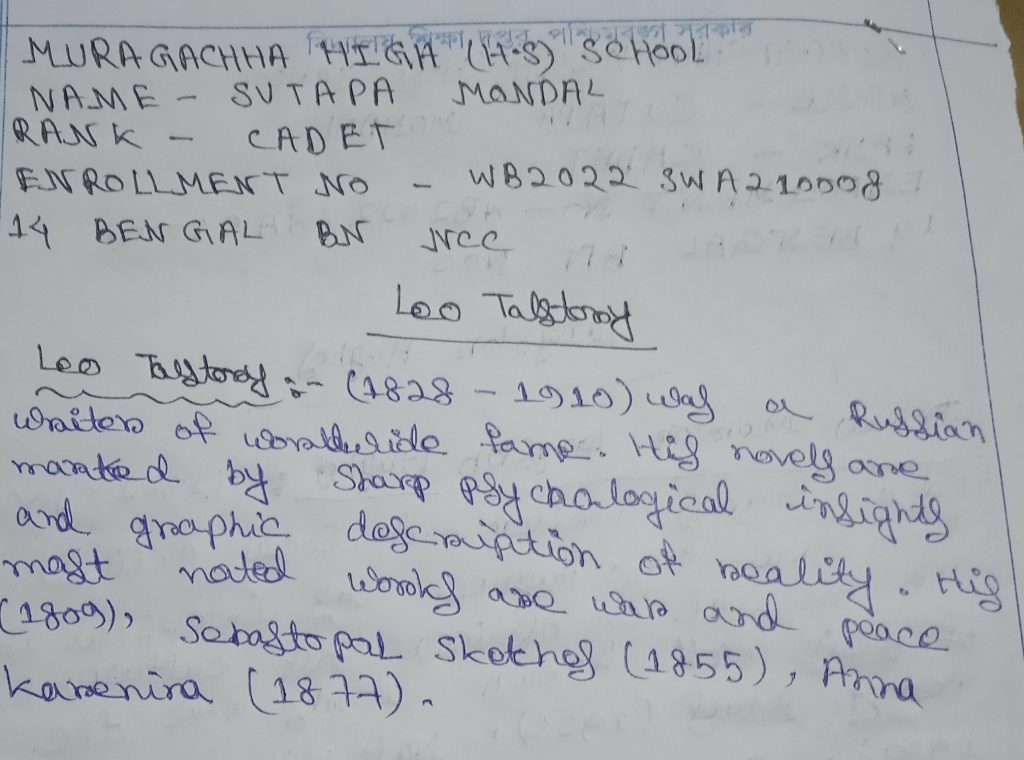 বিদ্যালয় শিক্ষা দপ্তর, পশ্চিমবঙ্গ সরকার
MURAGACHHA HIGH (H.S) SCHOOL
NAME - SUTAPA MONDAL
RANK - CADET
ENROLLMENT NO - WB2022 SWA210008
14 BENGAL BN NCC
Leo Talstoroy
Leo Talstoroy :- (1828 - 1910) was a Russian
writer of worldwide fame. His novels are
marked by Sharp psychalogical insights
and graphic description of reality. His
most noted works are war and peace
(1809), Sebastopal Sketches (1855), Anna
Karenina (1877).